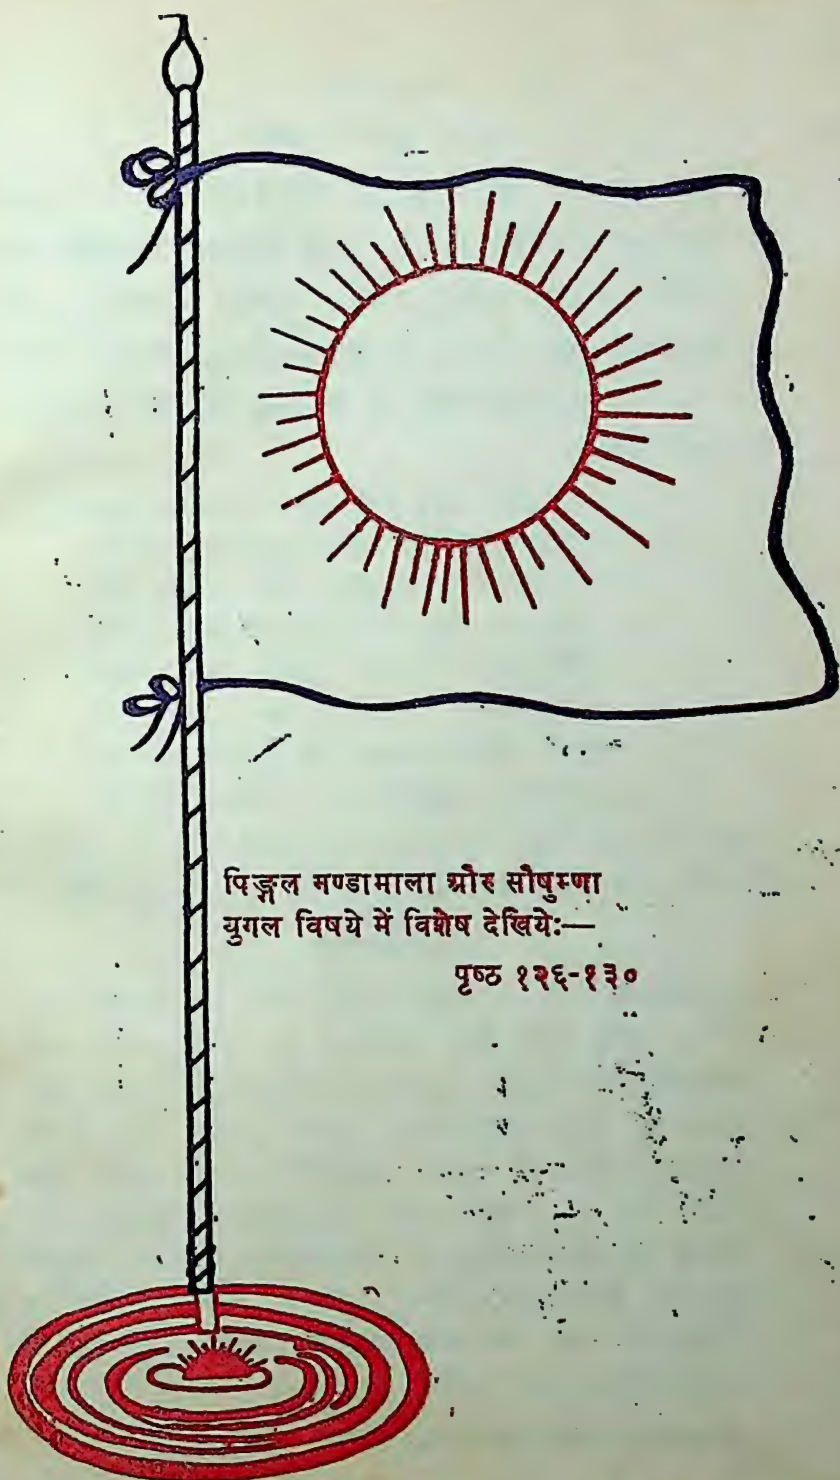 पिङ्गल मण्डामाला और सौषुम्णा
युगल विषये में विशेष देखिये:—
पृष्ठ १२६-१३०